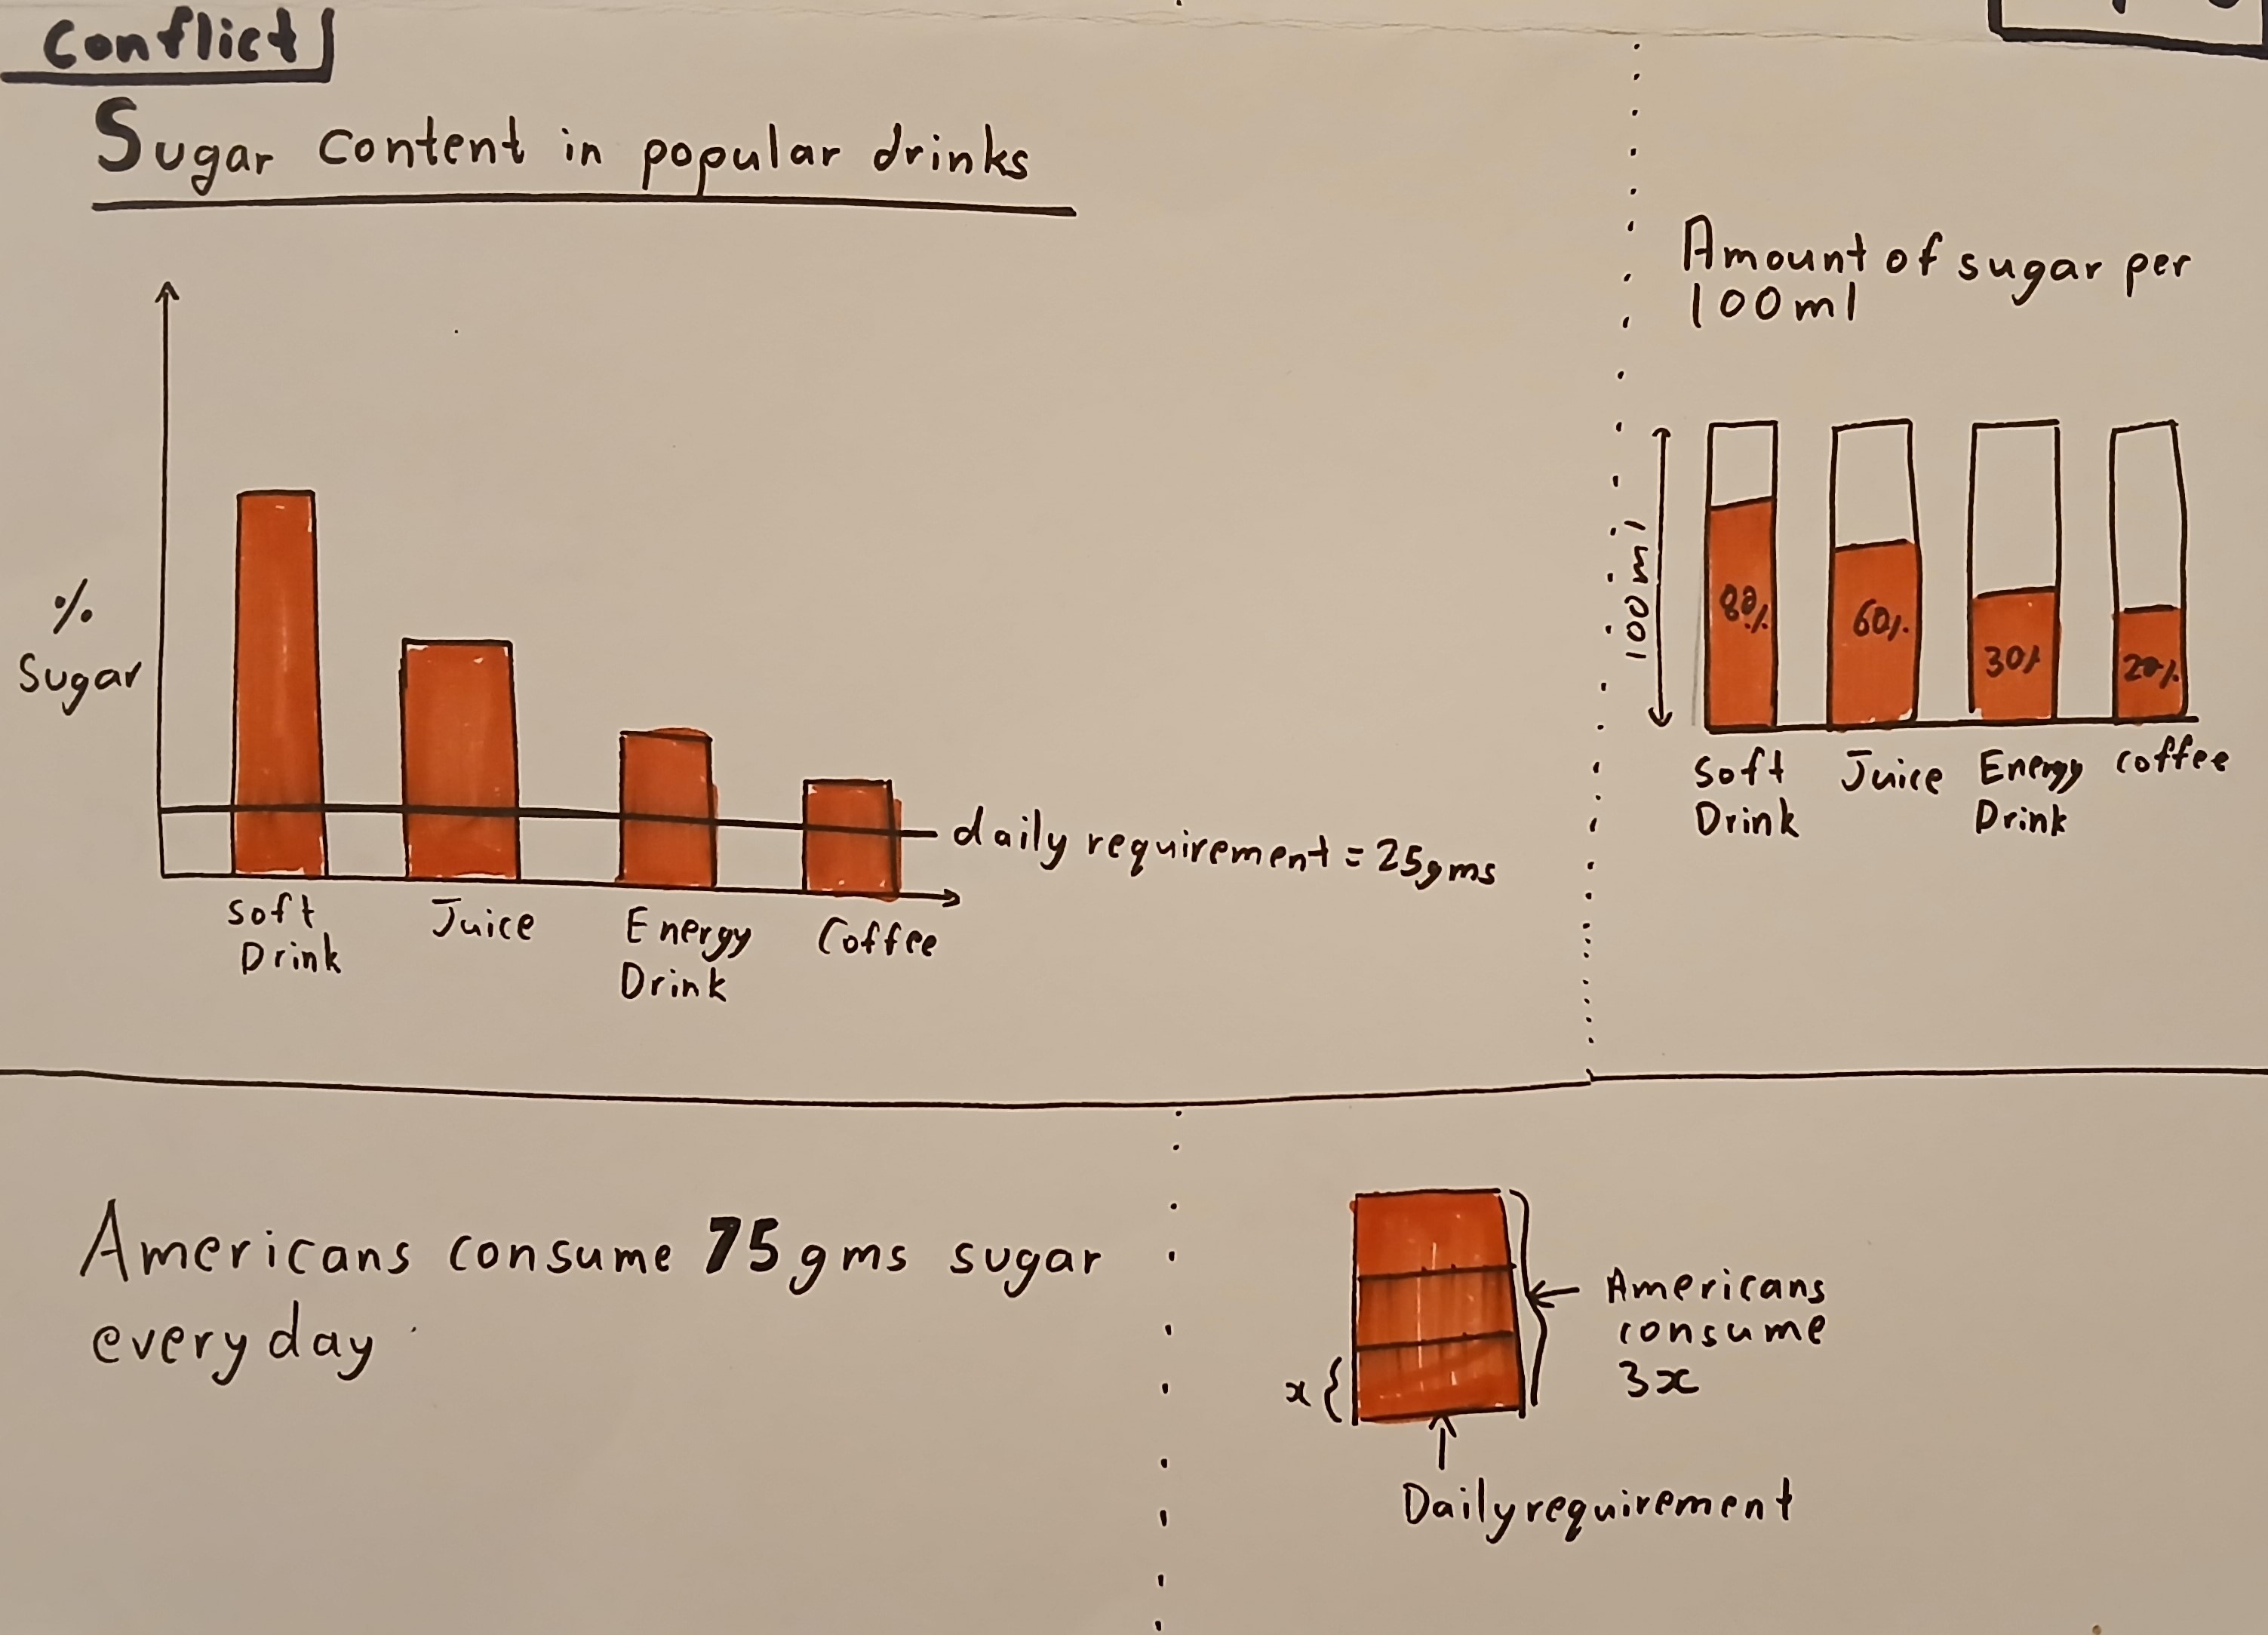 Conflict
Sugar content in popular drinks
%
Sugar
daily requirement = 25gms
Soft
Drink
Juice
Energy
Drink
Coffee
Amount of sugar per
100ml
100ml
80%
60%
30%
20%
Soft
Drink
Juice
Energy
Drink
coffee
Americans consume 75gms sugar
everyday
x
Americans
consume
3x
Daily requirement